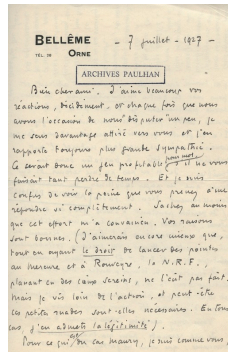 BELLÊME - 7 juillet - 1927 -
TÉL. 28 ORNE
ARCHIVES PAULHAN
Bien cher ami, J'aime beaucoup vos
réactions, décidément, et chaque fois que nous
avons l'occasion de nous disputer un peu, je
me sens davantage attiré vers vous et j'en
rapporte toujours plus grande sympathie.
Ce serait donc un jeu profitable pour moi, s'il ne vous
faisait tant perdre de temps. Et je suis
confus de voir la peine que vous prenez à me
répondre si complètement. Sachez au moins
que cet effort m'a convaincu. Vos raisons
sont bonnes. (J'aimerais encore mieux que,
tout en ayant le droit de lancer des pointes
au Mercure et à Rouveyre, la N.R.F.,
planant en des cimes sereines, ne l'eût pas fait.
Mais je vis loin de l'action, et peut-être
ces petites rudes sont-elles nécessaires. En tous
cas, j'en admets la légitimité).
Pour ce qui est du cas Maury, je suis comme vous,